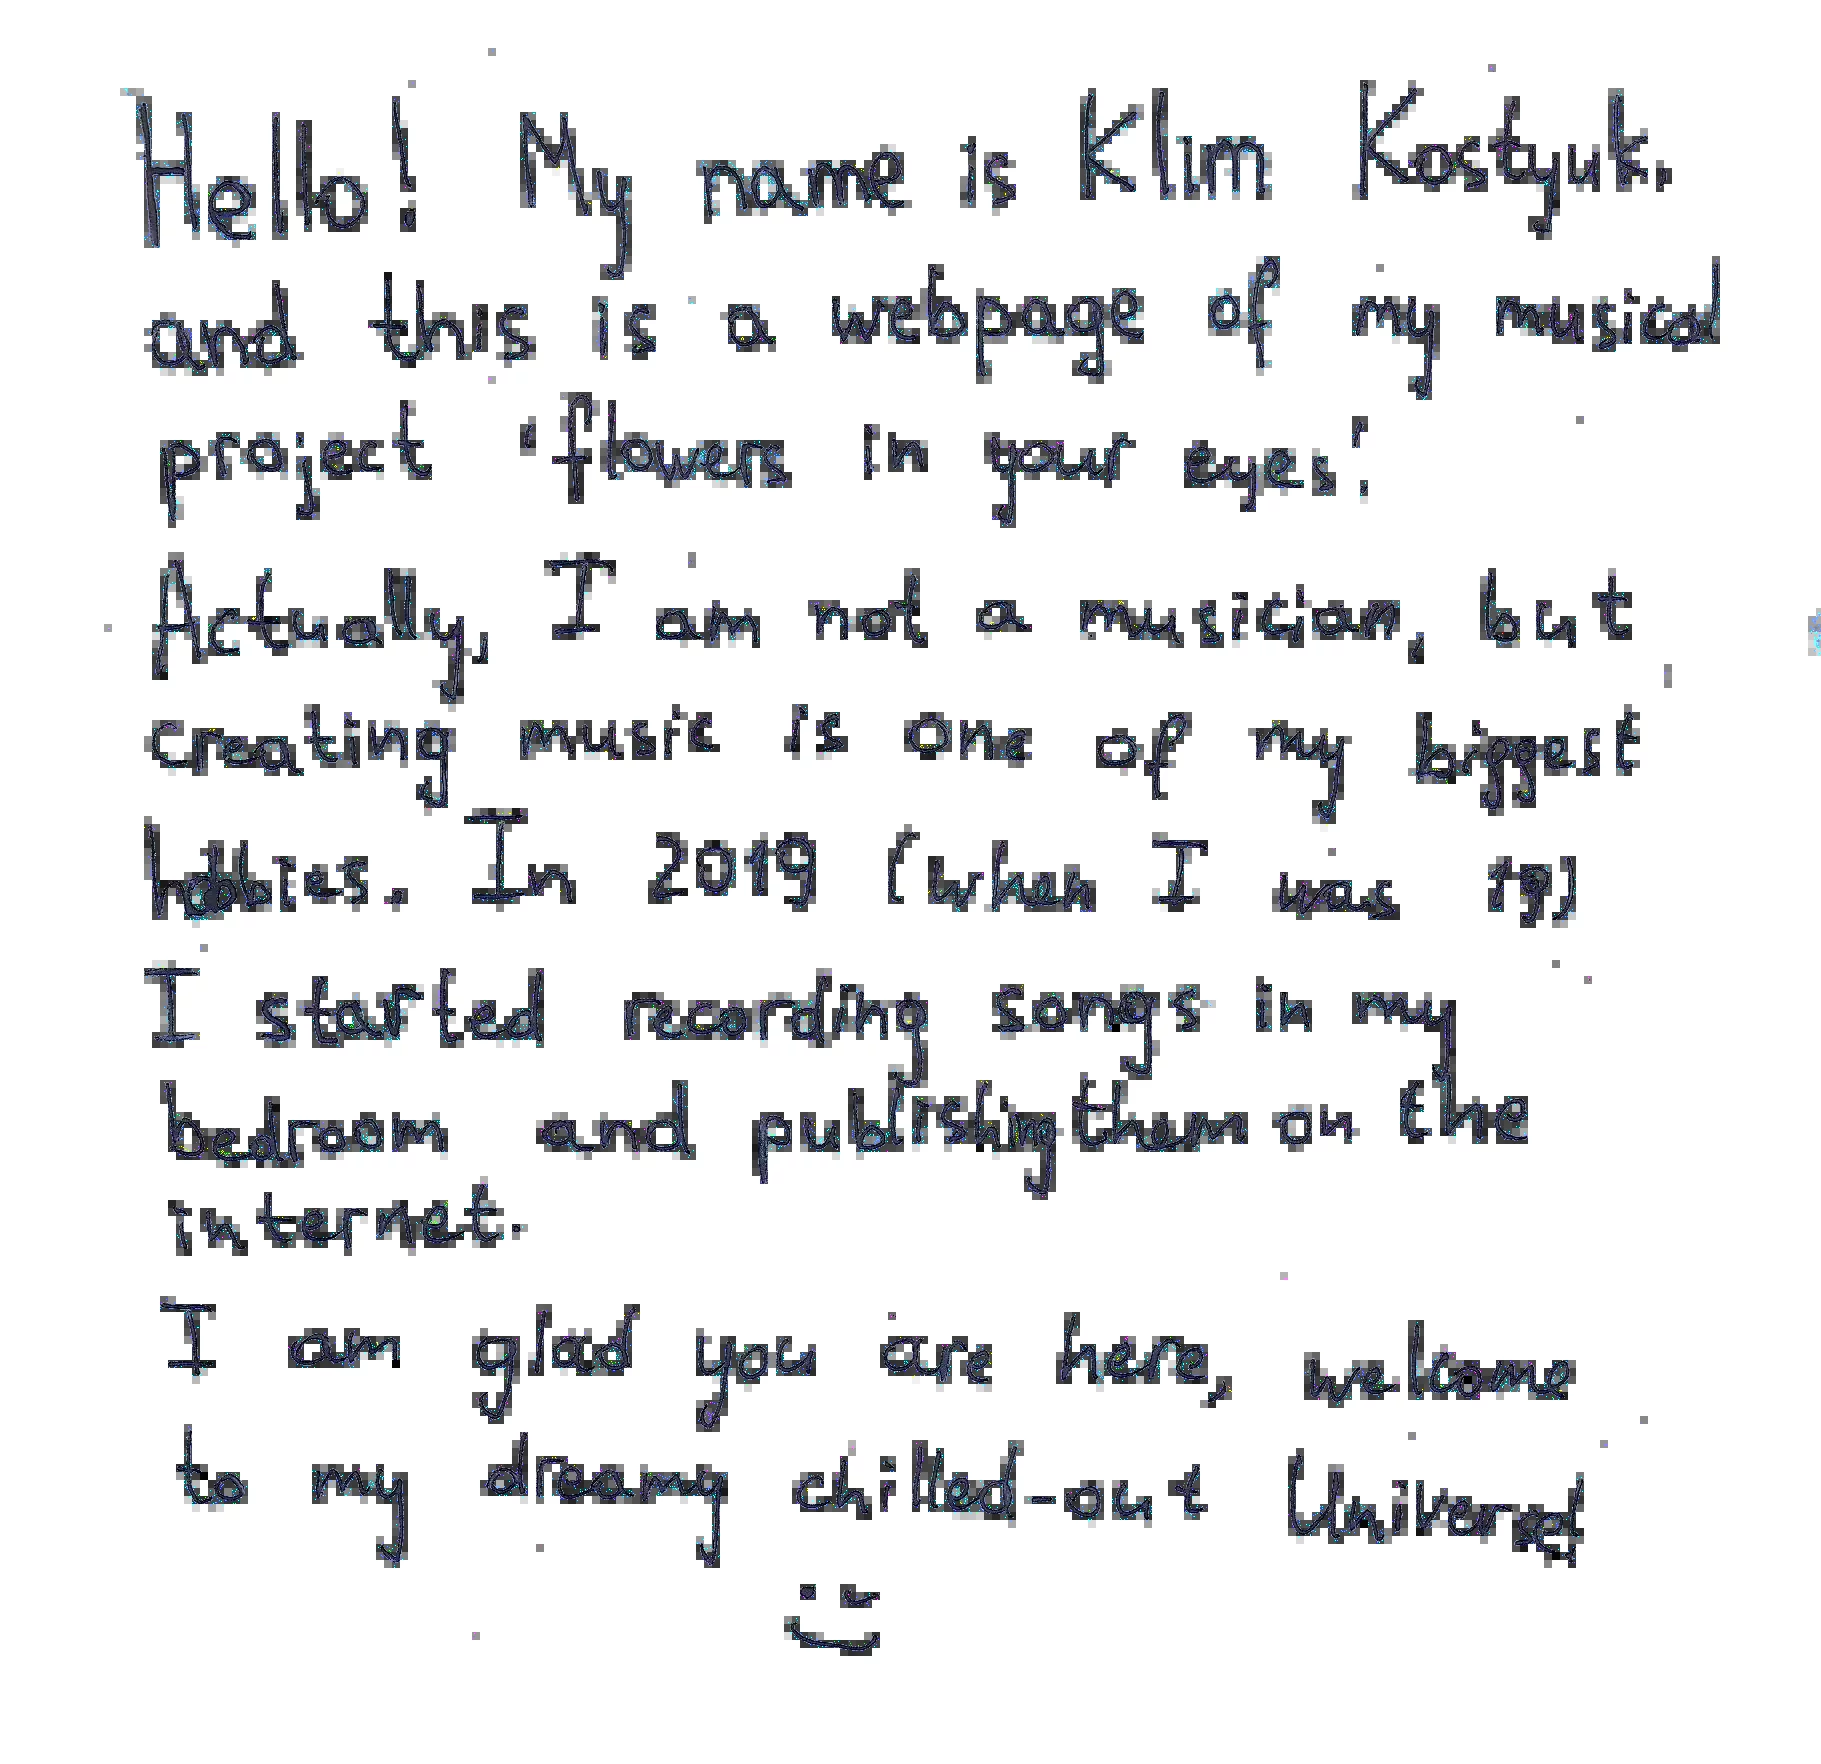 Hello! My name is Klim Kostyuk,
and this is a webpage of my musical
project 'flowers in your eyes'.
Actually, I am not a musician, but
creating music is one of my biggest
hobbies. In 2019 (when I was 19)
I started recording songs in my
bedroom and publishing them on the
internet.
I am glad you are here, welcome
to my dreamy chilled-out Universe!
:)